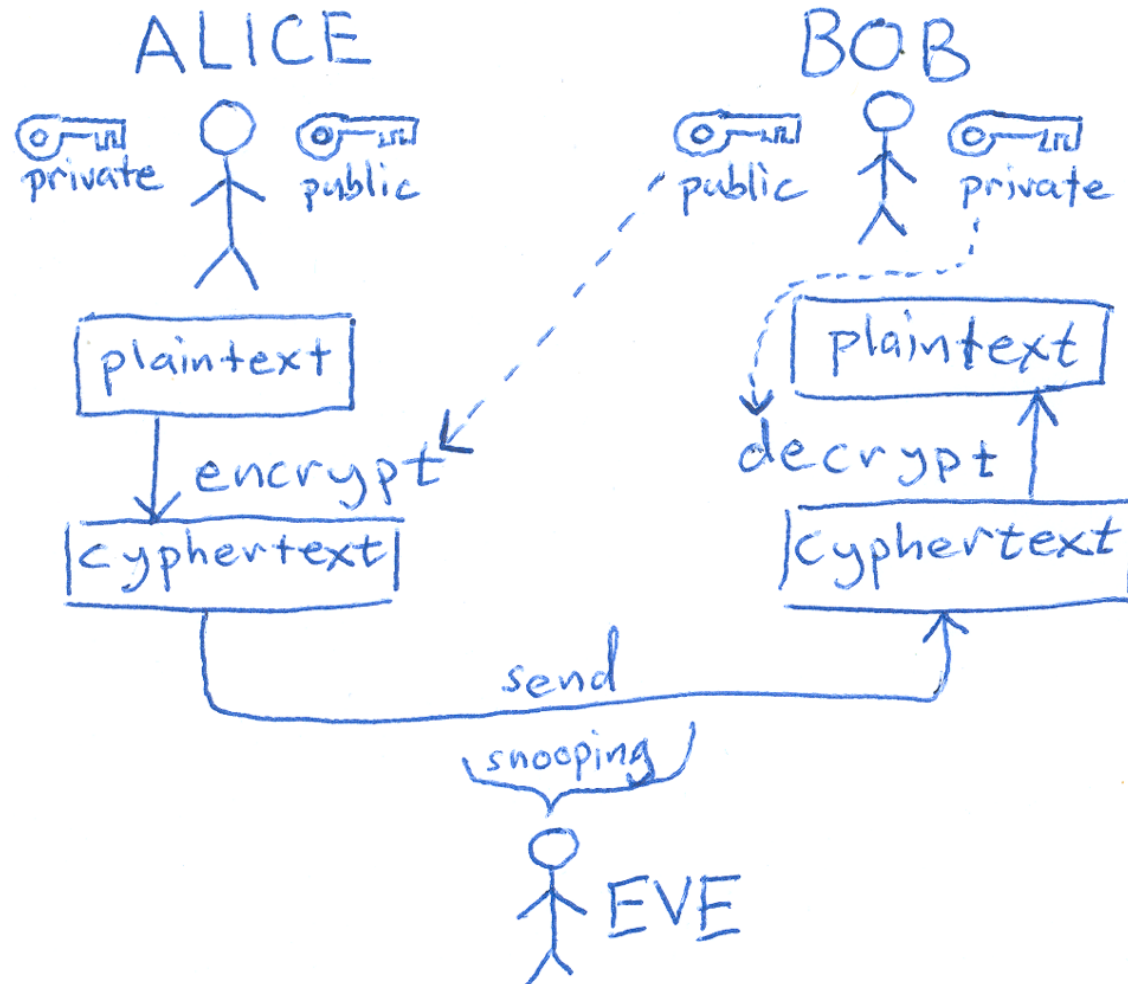 ALICE
BOB
private
public
public
private
plaintext
plaintext
encrypt
decrypt
cyphertext
cyphertext
send
snooping
EVE